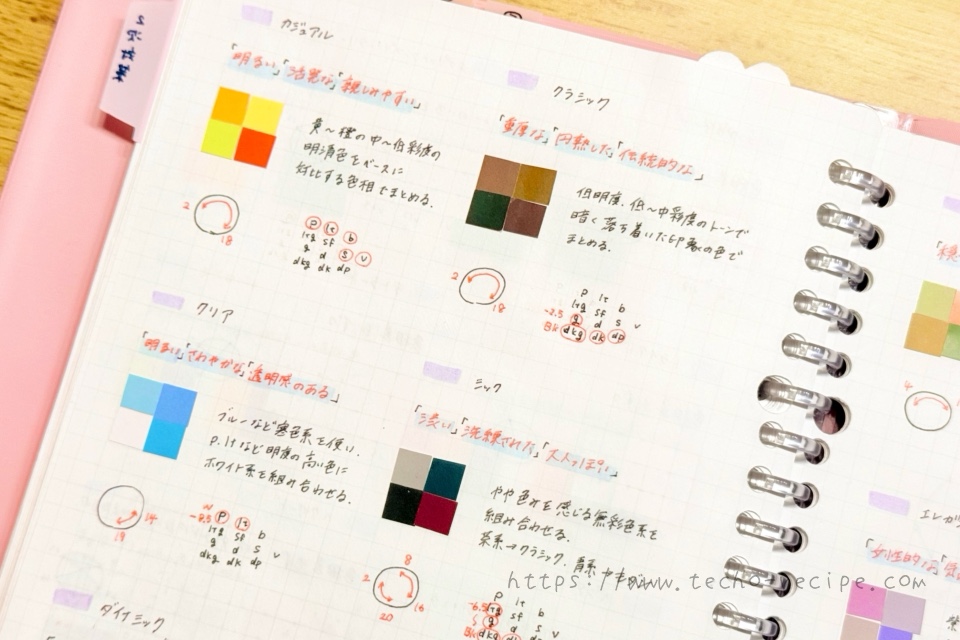 カジュアル
「明るい」「活発な」「親しみやすい」
黄〜橙の中〜低彩度の
明清色をベースに
対比する色相でまとめる。
2
18
p lt b
ltg sf
g d s v
dkg dk dp
クラシック
「重厚な」「円熟した」「伝統的な」
低明度、低〜中彩度のトーンで
暗く落ち着いた印象の色で
まとめる。
2
18
p lt b
ltg sf
-2.5 g d s v
Bk dkg dk dp
クリア
「明るい」「さわやかな」「透明感のある」
ブルーなど寒色系を使い、
p, ltなど明度の高い色に
ホワイト系を組み合わせる。
14
19
W
-9.5 p lt
ltg sf b
g d s v
dkg dk dp
シック
「渋い」「洗練された」「大人っぽい」
やや色みを感じる無彩色系を
組み合わせる。
茶系→クラシック、青系
8
2
16
20
p lt
ltg sf b
g d s v
ダイナミック
エレガ
「女性的な」
4
https://www.techo-recipe.com